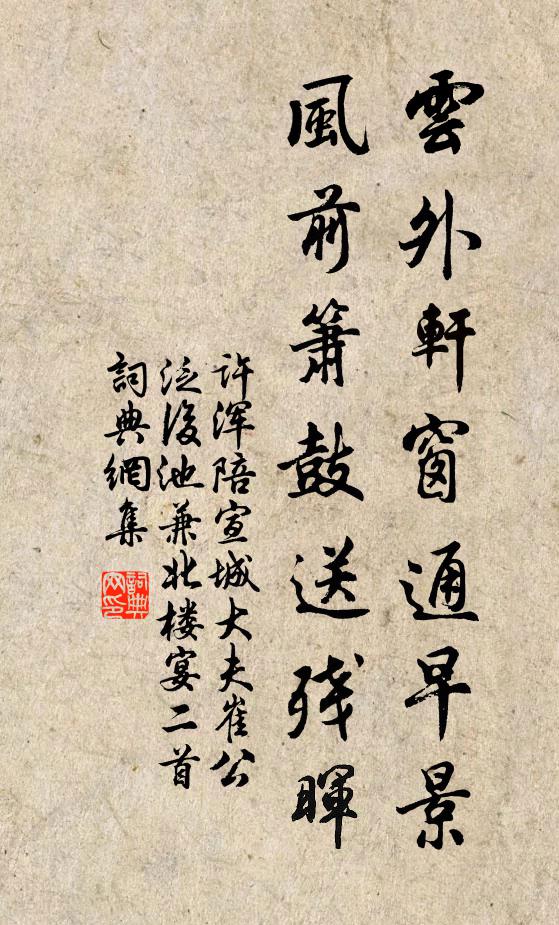 雲外軒窗通早景
風前簫鼓送残暉
许渾陪宣城大夫崔公
泛後池兼北楼宴二首
詞典網集
詞典网印